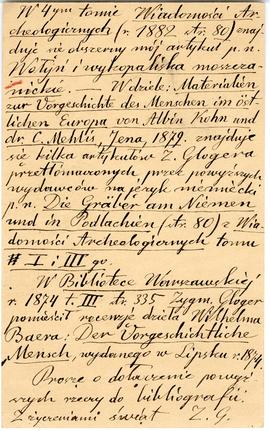 W 4ym tomie Wiadomości Ar-
cheologicznych (r. 1882 str. 80) znaj-
duje się obszerny mój artykuł p. n.
Wołyń i wykopaliska moszcza-
nickie. — W dziele: Materialien
zur Vorgeschichte des Menschen im öst-
lichen Europa von Albin Kohn und
dr. C. Mehlis, Jena, 1879. znajduje
się kilka artykułów Z. Glogera
przetłomaczonych, przez powyższych
wydawców na język niemiecki
p. n. Die Gräber am Niemen
und in Podlachien (str. 80) z Wia-
domości Archeologicznych tomu
# I i III go.
W Bibliotece Warszawskiej
r. 1874 t. III str. 335 Zygm. Gloger
pomieścił recenzję dzieła Wilhelma
Baera: Der Vorgeschichtliche
Mensch, wydanego w Lipsku r. 1874.
Proszę o dołączenie powyż-
szych rzeczy do bibliografii.
Z życzeniami świąt Z. G.